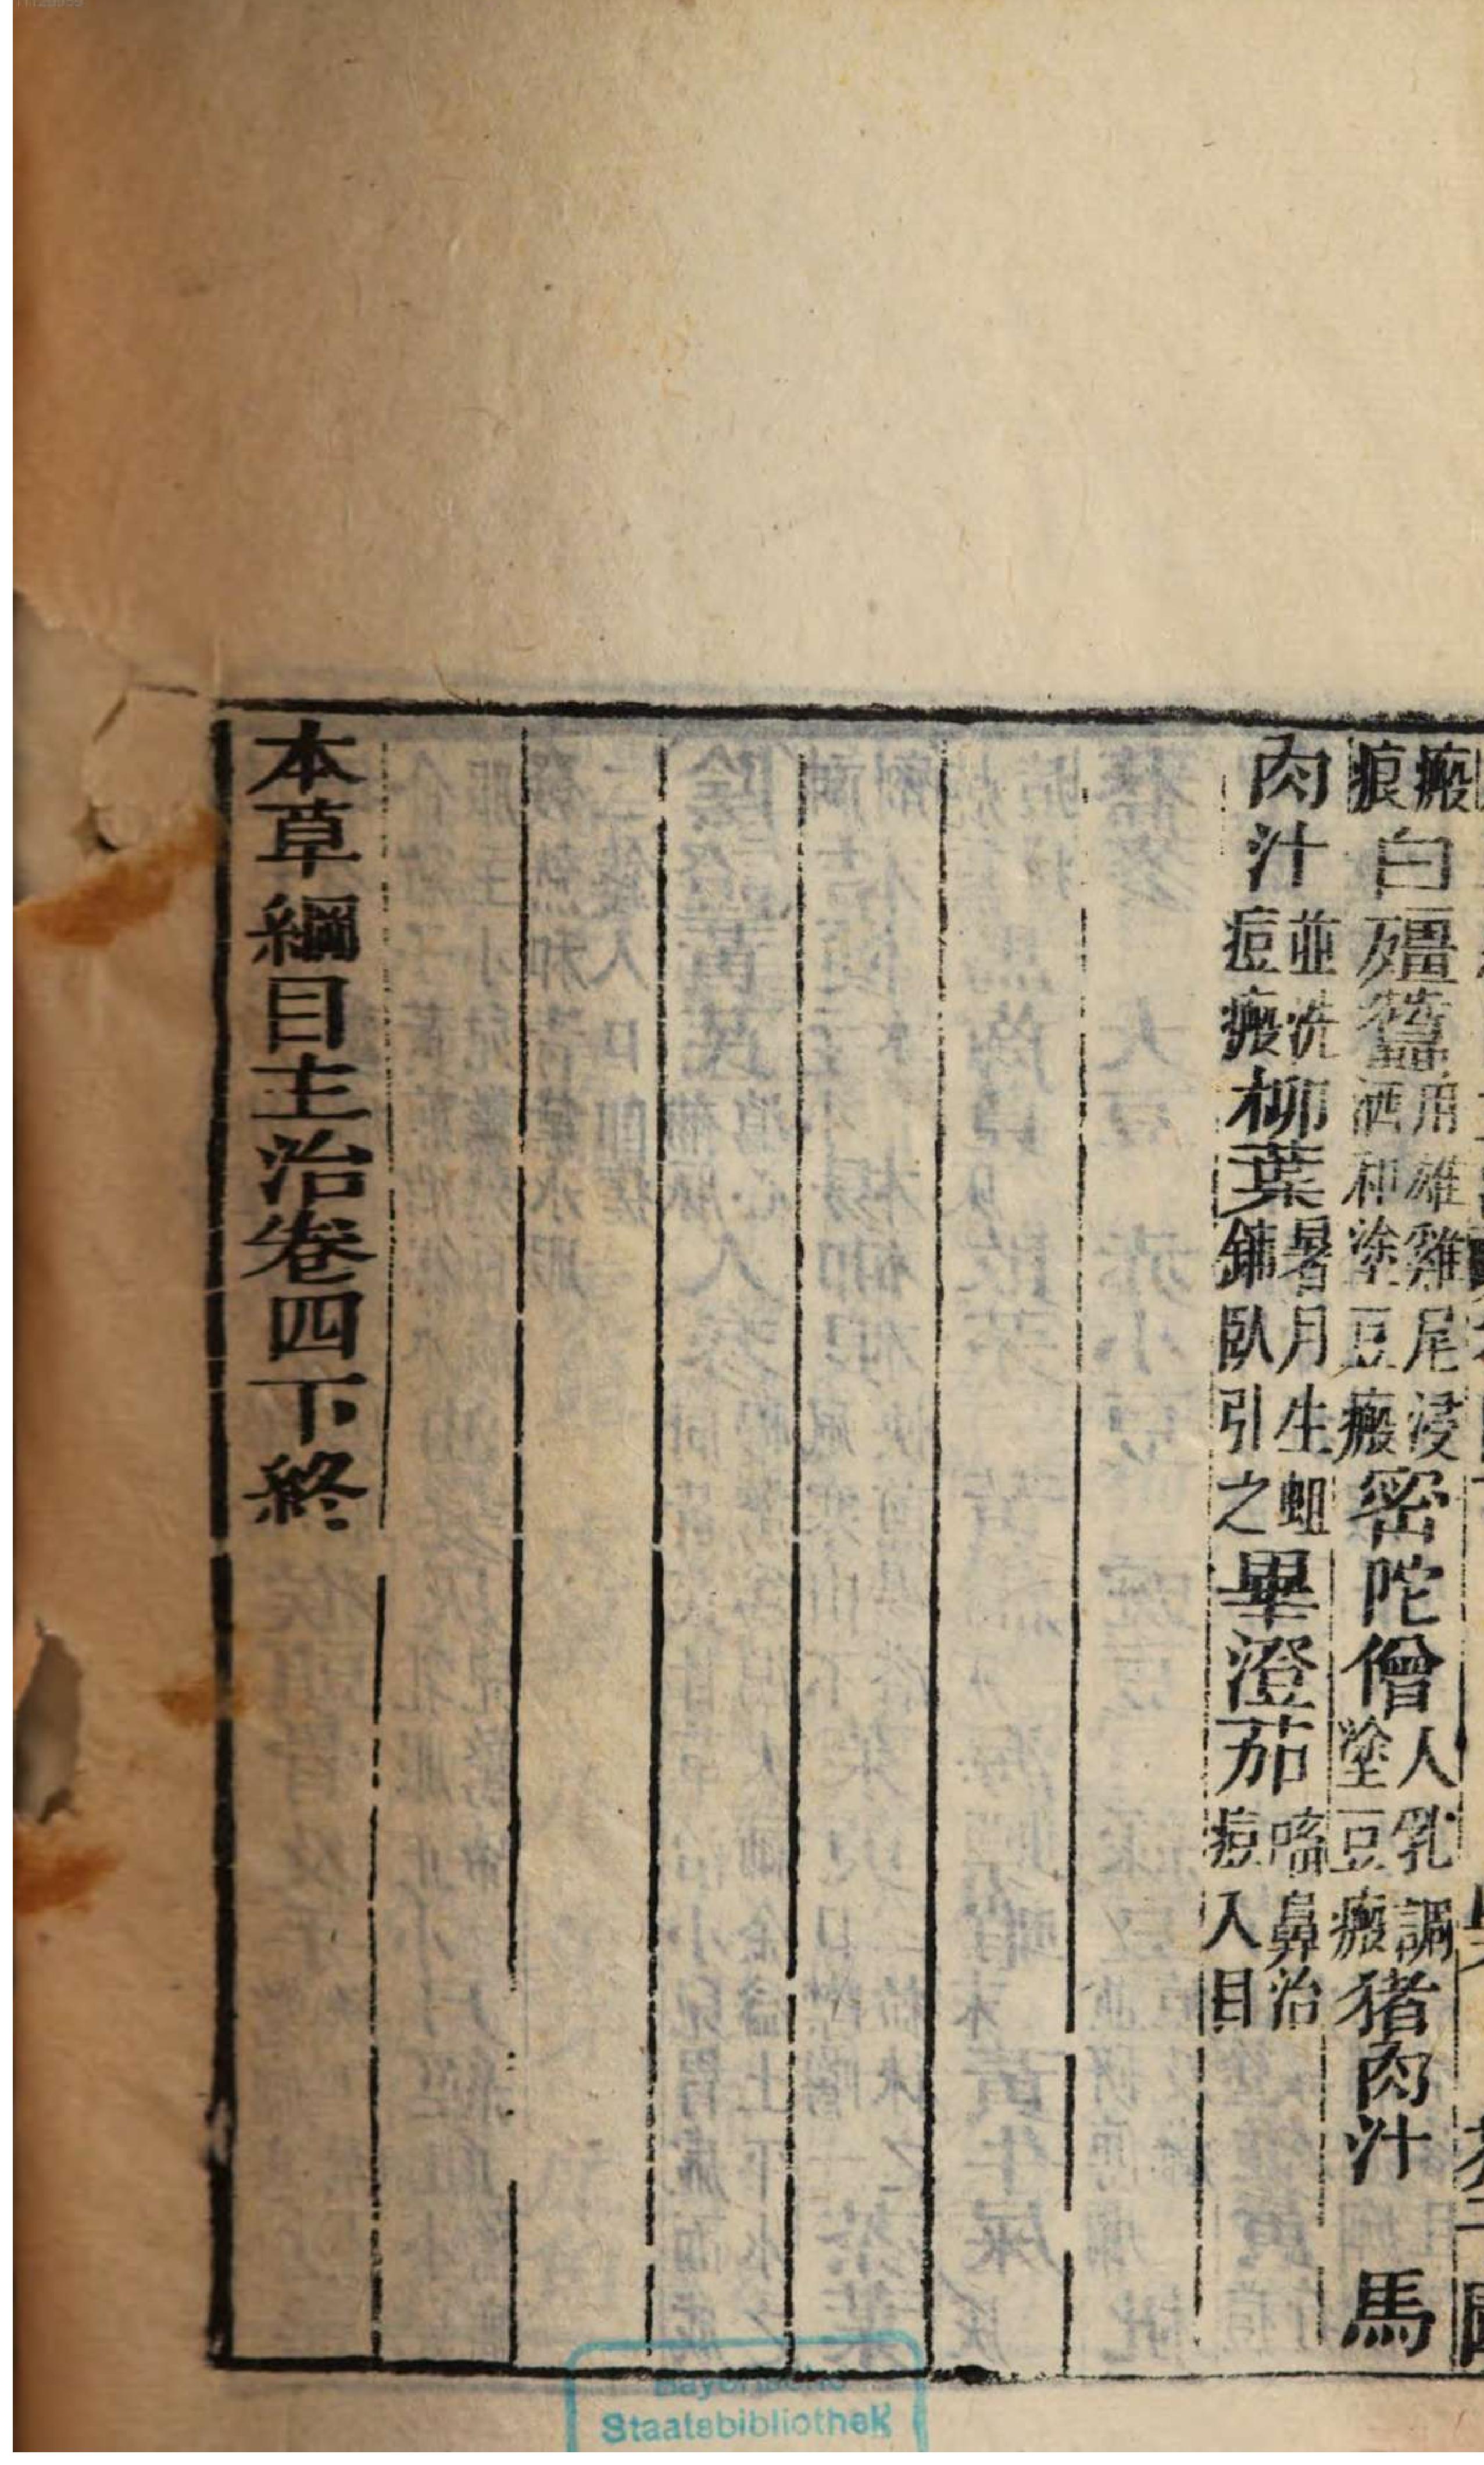 瘢痕白殭蠶用雄雞尾浸酒和塗豆瘢密陀僧人乳調塗豆瘢猪肉汁 馬
肉汁並洗痘瘢柳葉暑月生蛆鋪臥引之畢澄茄㗜鼻治痘入目
本草綱目主治卷四下終
Staatsbibliothek